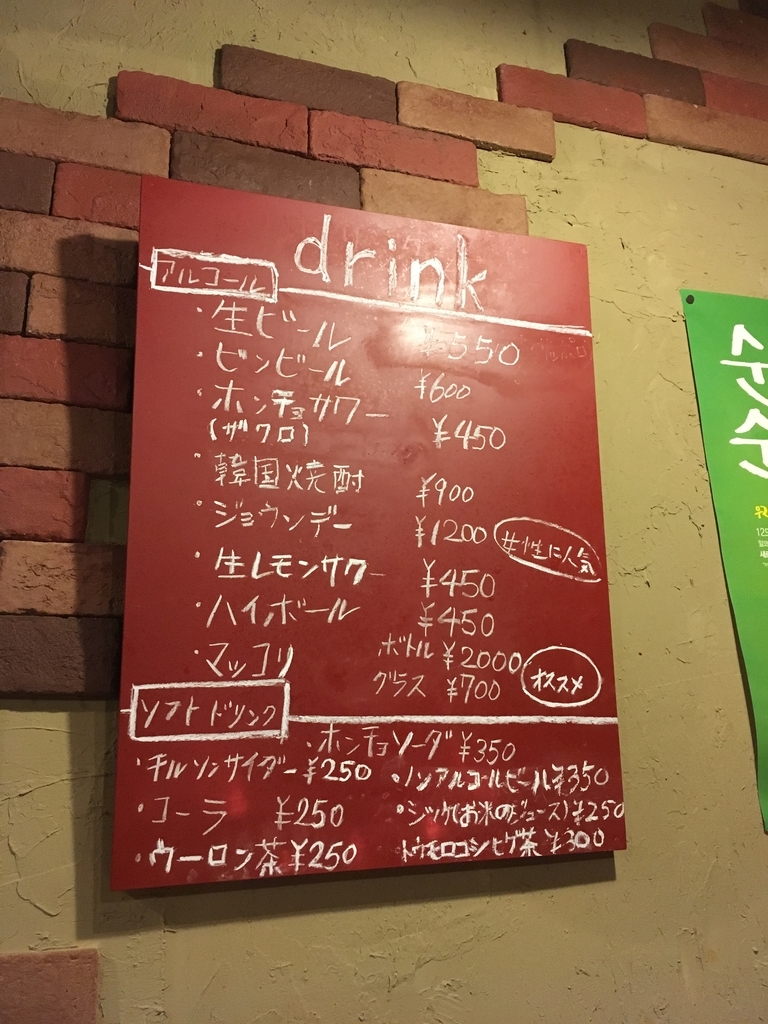 drink
アルコール
・生ビール ¥550
・ビンビール ¥600
・ホンチョサワー ¥450
(ザクロ)
・韓国焼酎 ¥900
・ジョウンデー ¥1200 女性に人気
・生レモンサワー ¥450
・ハイボール ¥450
・マッコリ ボトル ¥2000
グラス ¥700 オススメ
ソフトドリンク
・ホンチョソーダ ¥350
・チルソンサイダー ¥250
・ノンアルコールビール ¥350
・コーラ ¥250
・シッケ(お米のジュース) ¥250
・ウーロン茶 ¥250
トウモロコシヒゲ茶 ¥300
순
순